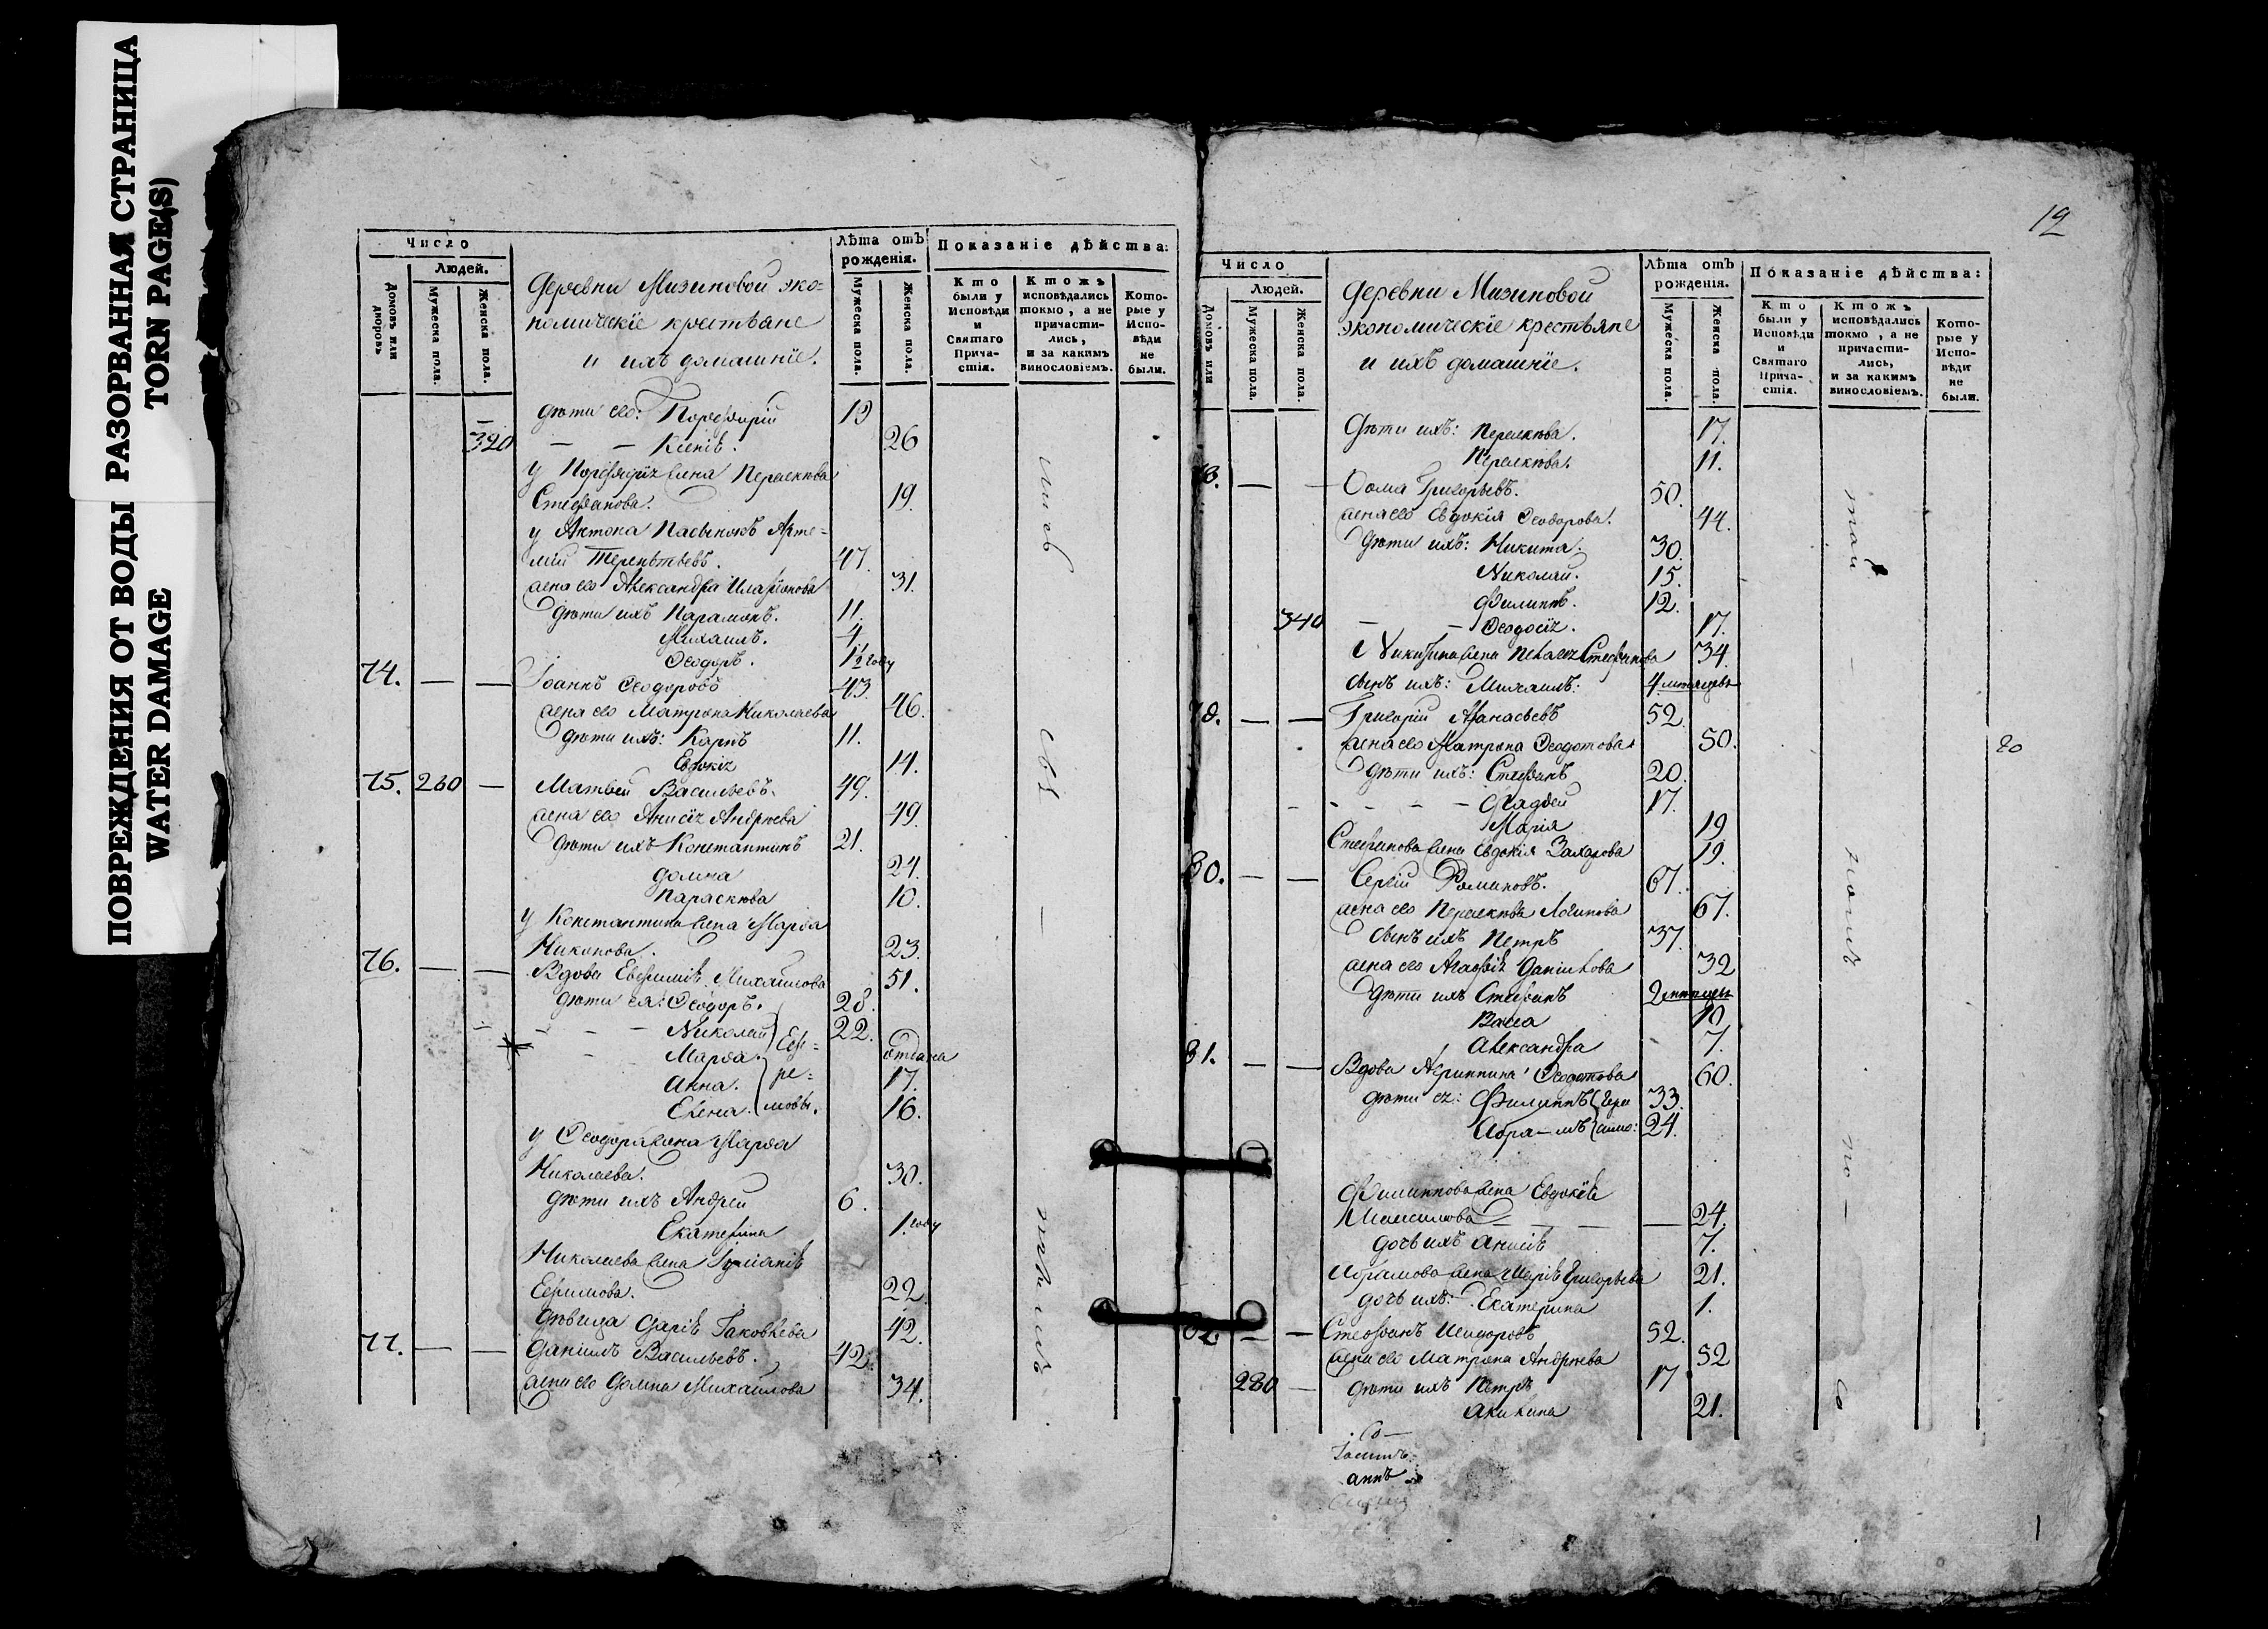 ПОВРЕЖДЕНИЯ ОТ ВОДЫ РАЗОРВАННАЯ СТРАНИЦА
WATER DAMAGE TORN PAGE(S)
Число
Людей.
Домовъ или дворовъ
Мужеска пола.
Женска пола.
Деревни Мизиновой эко=
номическіе крестьяне
и ихъ домашніе.
Лѣта отъ рожденія.
Мужеска пола.
Женска пола.
Показаніе дѣйства:
Кто были у Исповѣди и Святаго Причастія.
Ктожъ исповѣдались токмо, а не причастились, и за какимъ винословіемъ.
Которые у Исповѣди не были.
дѣти его: Порфирій 19
320 — — Ксенія. 26
у Порфирія жена Параскева
Стефанова. 19.
у Антона пасынокъ Арте=
мій Терентьевъ. 47.
жена его Александра Иларіонова 31.
дѣти ихъ Парамонъ. 11.
Михаилъ. 4
Ѳеодоръ. 1½ году
74. — — Іоаннъ Ѳеодоровъ 43
жена его Матрона Николаева 46.
дѣти ихъ: Карпъ 11.
Евдокія 14.
75. 260 — Матвей Васильевъ. 49.
жена его Анисія Андреева 49.
дѣти ихъ Константинъ 21.
Домна 24.
Параскева 10.
у Константина жена Марѳа
Никонова. 23.
76. — — Вдова Евфимія Михайлова 51.
дѣти ея: Ѳеодоръ. 28.
Николай 22.
Марѳа. отдана
Анна. 17.
Елена. 16.
Ефре=
мовы.
у Ѳеодора жена Марѳа
Николаева. 30.
дѣти ихъ Андрей 6.
Екатерина 1. году
Николаева жена Іуліанія
Ефимова. 22.
дѣвица Дарія Іаковлева 42.
77. — — Даніилъ Васильевъ. 42.
жена его Домна Михайлова 34.
19
Число
Людей.
Домовъ или
Мужеска пола.
Женска пола.
Деревни Мизиновой
экономическіе крестьяне
и ихъ домашніе.
Лѣта отъ рожденія.
Мужеска пола.
Женска пола.
Показаніе дѣйства:
Кто были у Исповѣди и Святаго Причастія.
Ктожъ исповѣдались токмо, а не причастились, и за какимъ винословіемъ.
Которые у Исповѣди не были.
Дѣти ихъ: Параскева. 17.
Параскева. 11.
78. — — Ѳома Григорьевъ. 50.
жена его Евдокія Ѳеодорова. 44.
дѣти ихъ: Никита. 30.
Николай. 15.
Филиппъ. 12.
340 — — Ѳеодосія. 17.
Никитина жена Пелагія Стефанова 34.
сынъ ихъ: Михаилъ: 4 мѣсяцевъ
79. — — Григорій Аѳанасьевъ 52.
жена его Матрона Ѳеодотова 50.
дѣти ихъ: Стефанъ 20.
Фаддей 17.
Марія 19
Стефанова жена Евдокія Захарова 19.
80. — — Сергій Романовъ. 67.
жена его Параскева Логинова 67.
сынъ ихъ Петръ 37.
жена его Агафія Даніилова 32
дѣти ихъ Стефанъ
Васса 10
Александра 7.
81. — — Вдова Агриппина Ѳеодотова 60.
дѣти ея: Филиппъ 33.
Абрамъ 24.
Филиппова жена Евдокія
Максимова — — — 24.
дочь ихъ Анисія 7.
Абрамова жена Марія Григорьева 21.
дочь ихъ: Екатерина 1.
82. — — Стефанъ Исидоровъ 52.
жена его Матрона Андреева 52
280 — дѣти ихъ Петръ 17
Акилина 21.